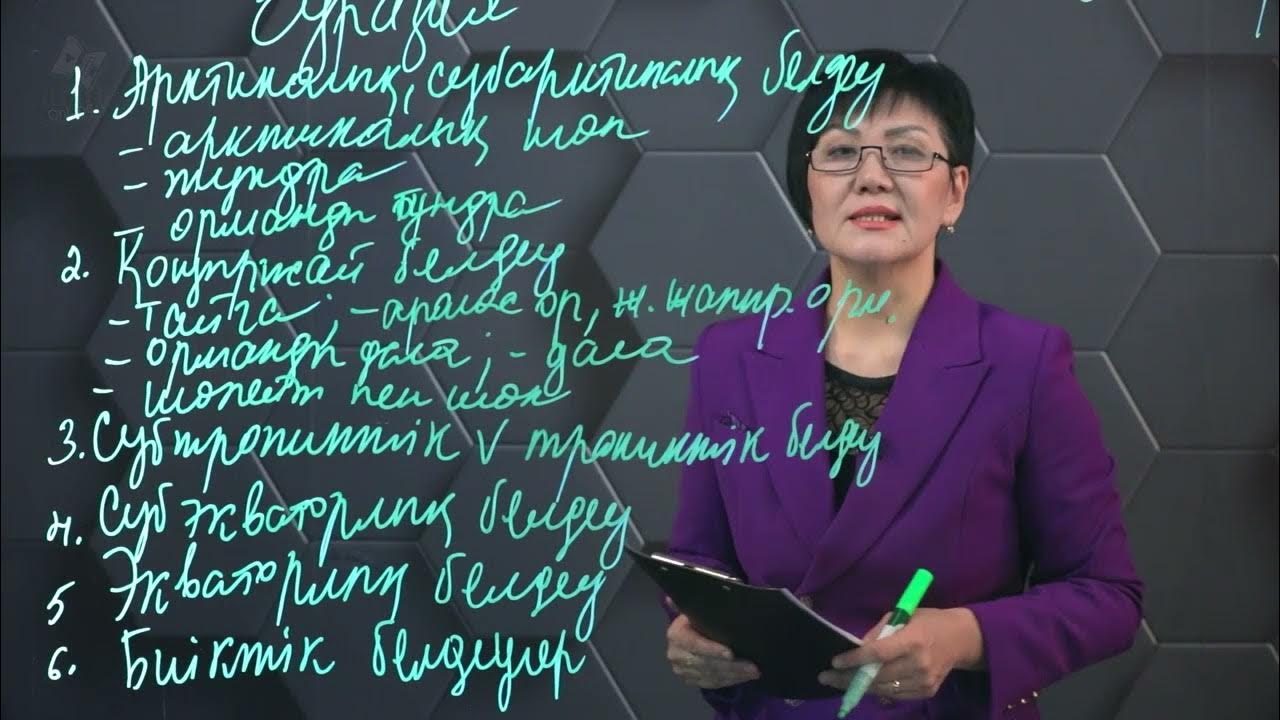 Еуразия
1. Арктикалық, субарктикалық белдеу
- арктикалық шөл
- тундра
- орманды тундра
2. Қоңыржай белдеу
- тайга; - аралас ор, ж. жапыр. орм.
- орманды дала; - дала
- шөлейт пен шөл
3. Субтропиктік V тропиктік белдеу
4. Субэкваторлық белдеу
5 Экваторлық белдеу
6. Биіктік белдеулер